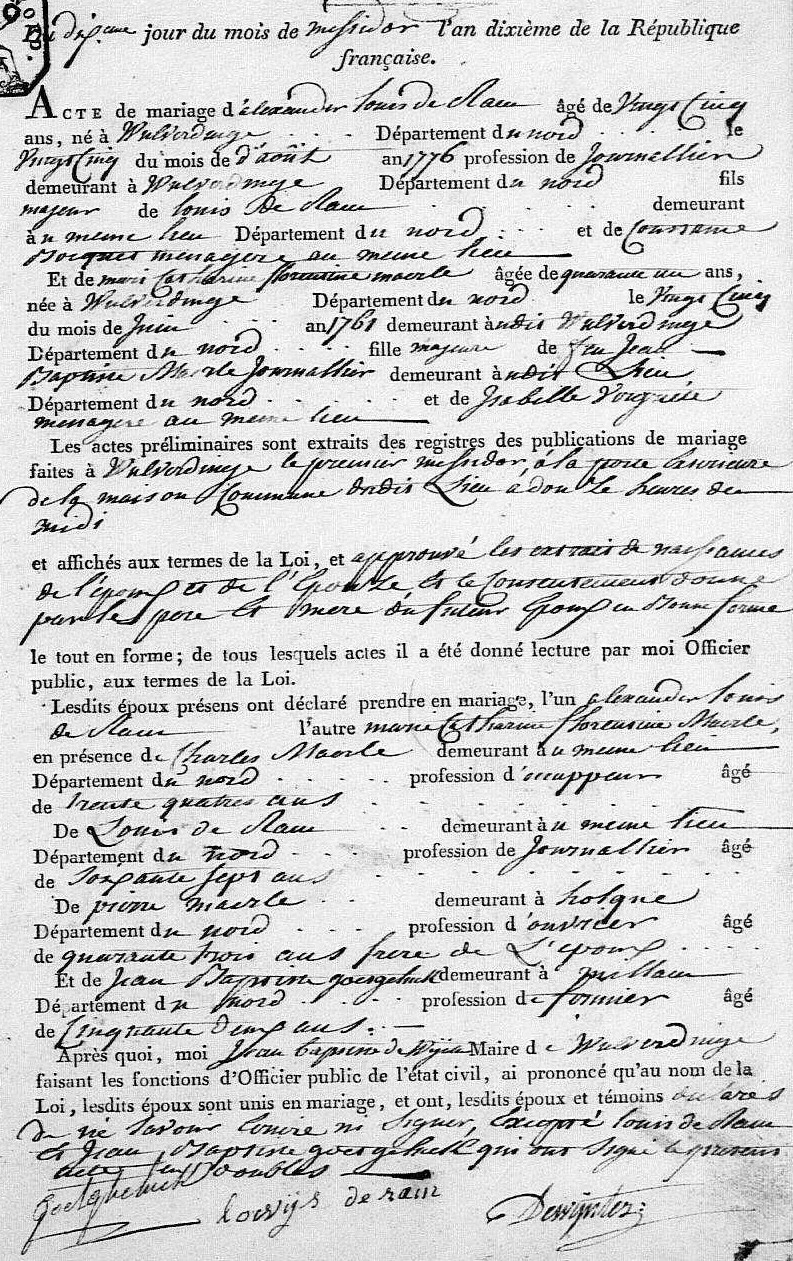 Du dixeme jour du mois de messidor l'an dixième de la République
française.
ACTE de mariage d'alexander louis de Ram âgé de Vingt Cinq
ans, né à Wulverdinge Département du nord le
Vingt Cinq du mois de d'août an 1776 profession de Journallier
demeurant à Wulverdinge Département du nord fils
majeur de louis De Ram demeurant
au meme lieu Département du nord et de Constance
menagere au meme lieu
Et de marie Catharine florentine maerle âgée de quarante un ans,
née à Wulverdinge Département du nord le Vingt Cinq
du mois de Juin an 1761 demeurant àudit Wulverdinge
Département du nord fille majeure de feu Jean
Baptiste Maerle Journallier demeurant àudit Lieu
Département du nord et de Isabelle
menagere au meme lieu
Les actes préliminaires sont extraits des registres des publications de mariage
faites à Wulverdinge le premier messidor, à la porte
de la maison Commune dudit Lieu a douze heures de
midi
et affichés aux termes de la Loi, et approuvé les extrait de naissances
de l'époux et de l'Epouze Et le Consentement donne
par les pere Et mere du futeur Epoux en Bonne forme
le tout en forme; de tous lesquels actes il a été donné lecture par moi Officier
public, aux termes de la Loi.
Lesdits époux présens ont déclaré prendre en mariage, l'un alexander louis
de Ram l'autre marie Catharine florentine Maerle,
en présence de Charles Maerle demeurant àu meme lieu
Département du nord profession d'occuppeur âgé
de trente quatres ans
De Louis de Ram demeurant àu meme lieu
Département du nord profession de Journallier âgé
de soixante sept ans
De pierre maerle demeurant à holque
Département du nord profession d'ouvrier âgé
de quarante trois ans frere de L'epoux
Et de Jean Baptiste goetgeluck demeurant à millam
Département du nord profession de fermier âgé
de Cinquante deux ans.
Après quoi, moi Jean baptiste de Maire de Wulverdinge
faisant les fonctions d'Officier public de l'état civil, ai prononcé qu'au nom de la
Loi, lesdits époux sont unis en mariage, et ont, lesdits époux et témoins declarés
de ne savoir Ecrire ni signer, Excepté louis de Ram
et Jean Baptiste goetgeluck qui ont signé le present
acte en Doubles
Goetgheluck lowijs de ram Dewynter